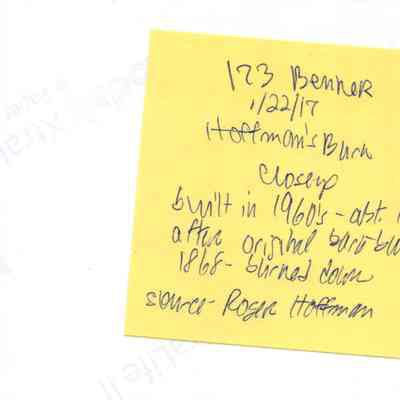 173 Benner
1/22/17
Hoffman's Barn
Closeup
built in 1960's - abt
after original barn bu
1868 - burned down
source - Roger Hoffman